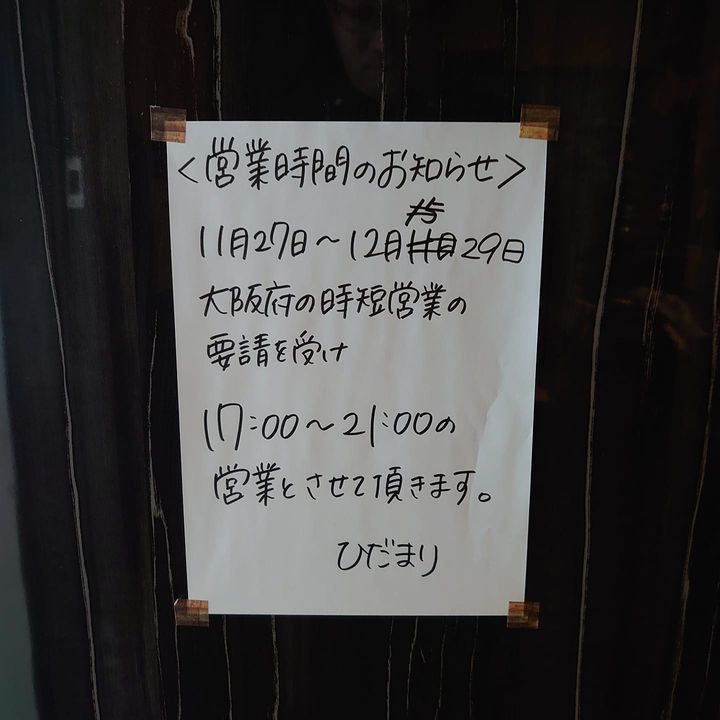 <営業時間のお知らせ>
11月27日～12月29日
大阪府の時短営業の
要請を受け
17:00～21:00の
営業とさせて頂きます。
ひだまり